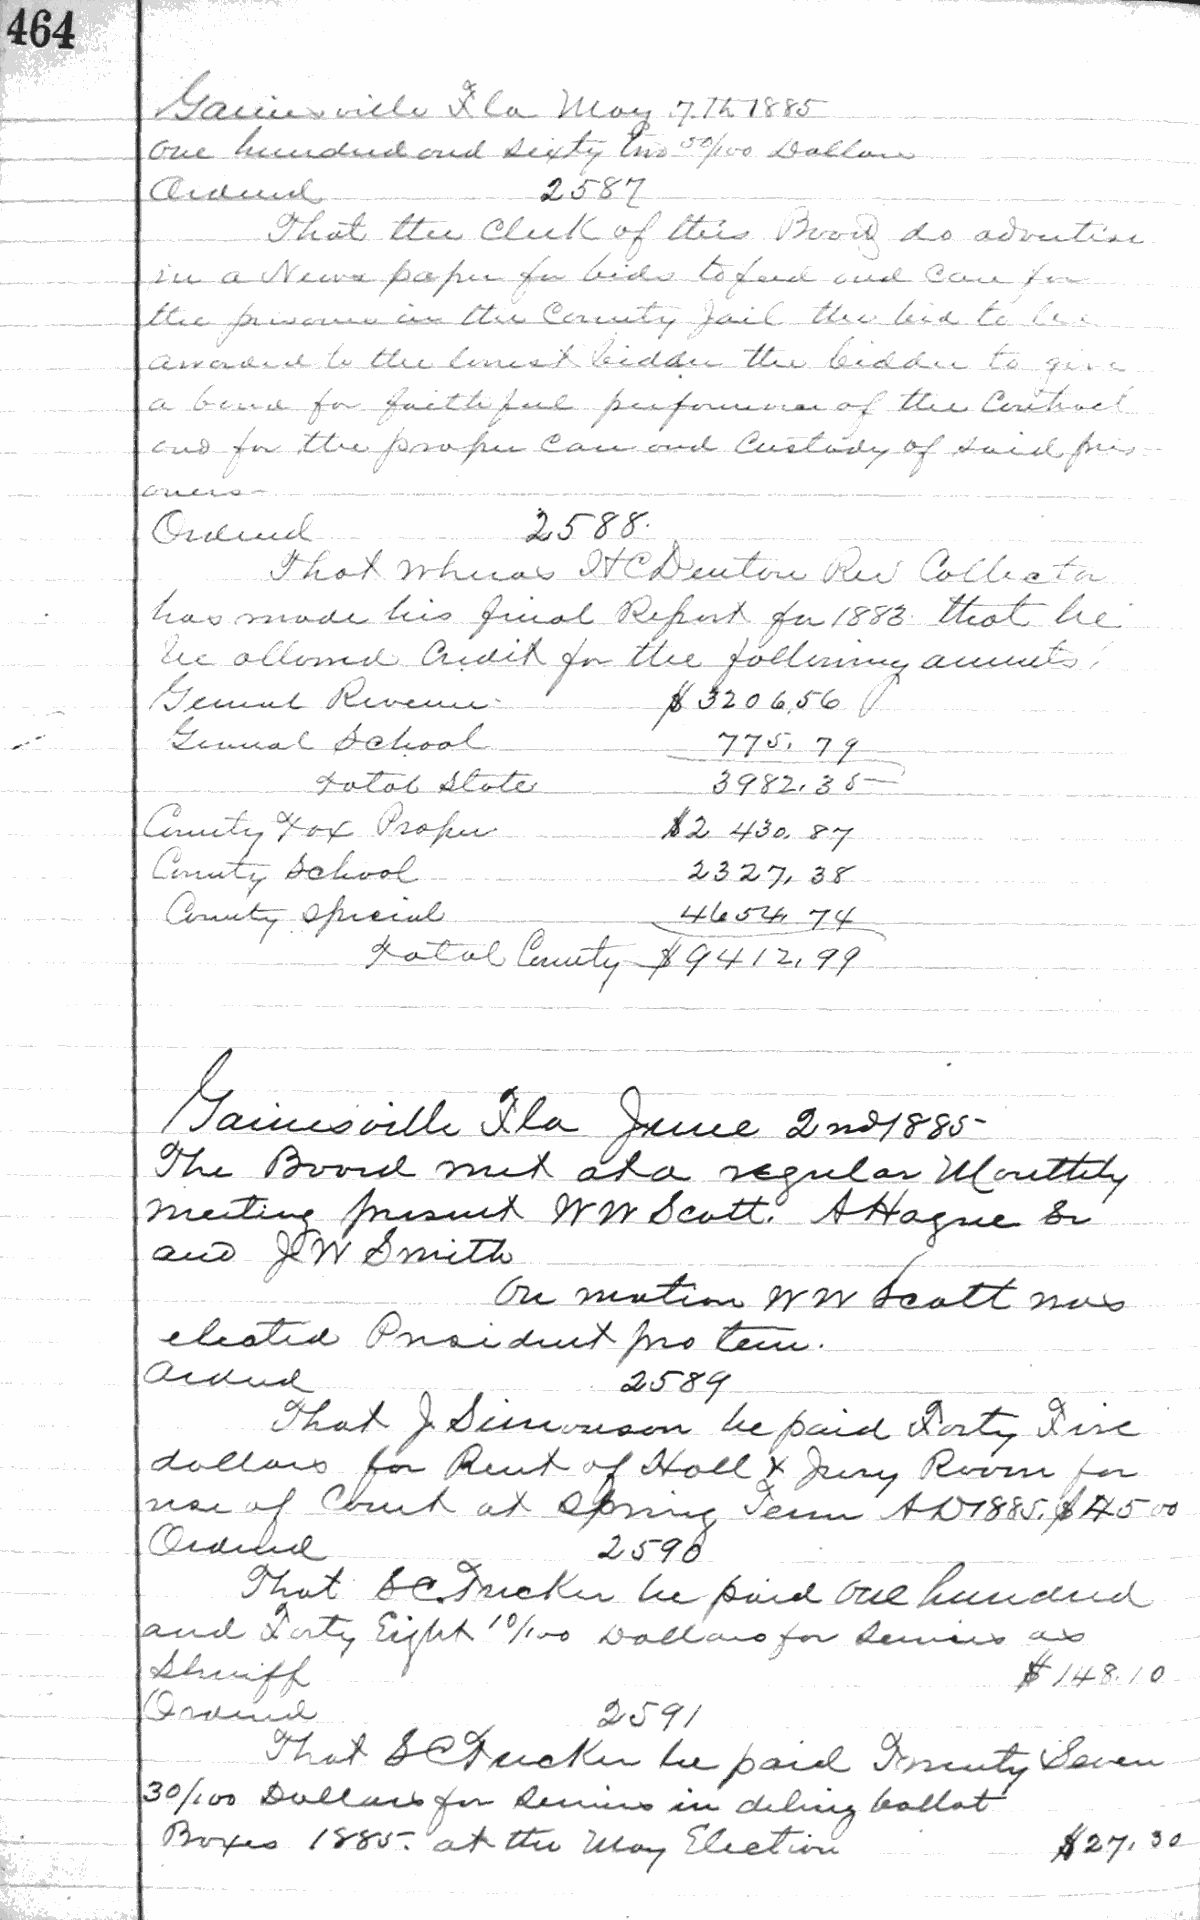 464
Gainesville Fla May 7th 1885
One hundred and sixty two 50/100 Dollars
Ordered 2587
That the Clerk of this Board do advertise
in a News paper for bids to feed and care for
the prisoners in the County Jail the bid to be
awarded to the lowest bidder the bidder to give
a bond for faithful performance of the Contract
and for the proper care and Custody of said pris-
oners
Ordered 2588.
That whereas H C Denton Rev Collector
has made his final Report for 1883 that he
be allowed Credit for the following amounts
General Revenue $3206.56
General School 775.79
Total State 3982.35
County Tax Proper $2430.87
County School 2327.38
County Special 4654.74
Total County $9412.99
Gainesville Fla June 2nd 1885
The Board met at a regular Monthly
meeting present W W Scott. A Hague Sr
and J W Smith
On motion W W Scott was
elected President pro tem.
Ordered 2589
That J Simonson be paid Forty Five
dollars for Rent of Hall & Jury Room for
use of Court at Spring Term A D 1885. $45 00
Ordered 2590
That S C Tucker be paid One hundred
and Forty Eight 10/100 Dollars for Services as
Sheriff $148.10
Ordered 2591
That S C Tucker be paid Twenty Seven
30/100 Dollars for Services in deling ballot
Boxes 1885. at the May Election $27.30